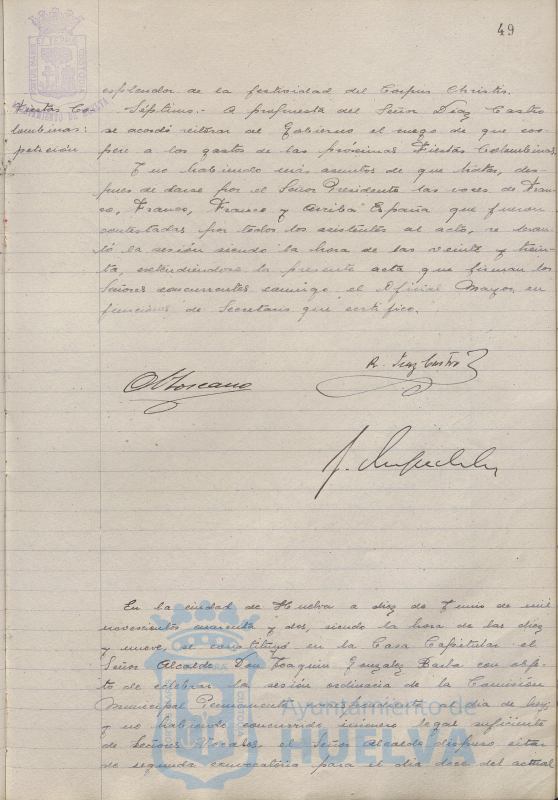 49
esplendor de la festividad del Corpus Christi.
Fiestas Co-
lombinas:
petición
Séptimo.- A propuesta del Señor Díaz Castro
se acordó reiterar al Gobierno el ruego de que coo-
pere a los gastos de las próximas Fiestas Colombinas.
Y no habiendo más asuntos de que tratar, des-
pues de darse por el Señor Presidente las voces de Fran-
co, Franco, Franco y Arriba España que fueron
contestadas por todos los asistentes al acto, se levan-
tó la sesión siendo la hora de las veinte y trein-
ta, extendiéndose la presente acta que firman los
Señores concurrentes conmigo el Oficial Mayor en
funciones de Secretario que certifico.
R. Diaz Castro
En la ciudad de Huelva a diez de Junio de mil
novecientos cuarenta y dos, siendo la hora de las diez
y nueve, se constituyó en la Casa Capitular el
Señor Alcalde Don Joaquin González Barba con obje-
to de celebrar la sesión ordinaria de la Comisión
Municipal Permanente correspondiente al dia de hoy
y no habiendo concurrido número legal suficiente
de Señores Vocales, el Señor Alcalde dispuso citar
de segunda convocatoria para el dia doce del actual
Ayuntamiento de
HUELVA